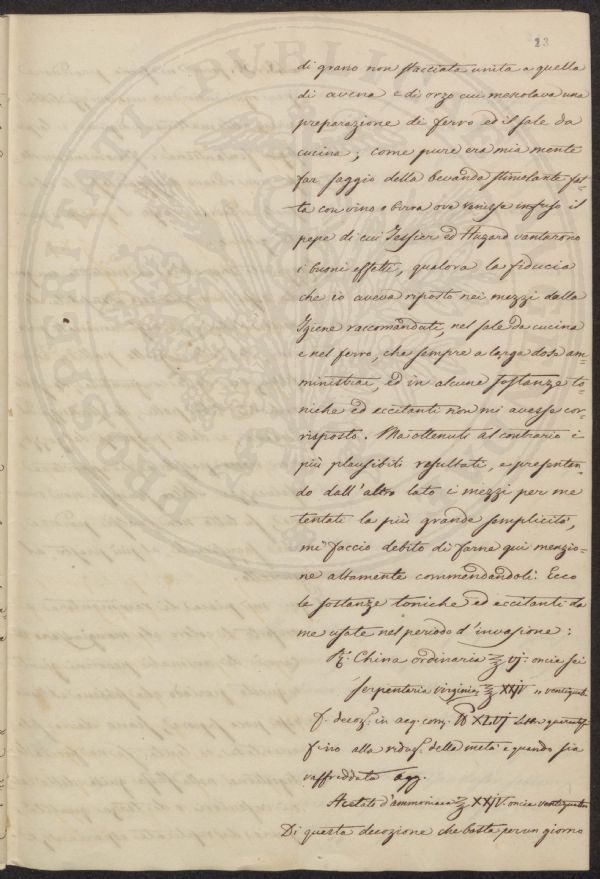 23
di grano non stacciata unita a quella
di avena e di orzo cui mescolava una
preparazione di ferro ed il sale da
cucina; come pure era mia mente
far saggio della bevanda stimolante fat=
ta con vino o birra ove venisse infuso il
pepe di cui Tessier ed Huzard vantarono
i buoni effetti, qualora la fiducia
che io aveva riposto nei mezzi dalla
Igiene raccomandati, nel sale da cucina
e nel ferro, che sempre a larga dose am=
ministrai, ed in alcune sostanze to=
niche ed eccitanti non mi avesse cor=
risposto. Ma ottenuti al contrario i
più plausibili resultati, e presentan
do dall'altro lato i mezzi per me
tentati la più grande semplicità,
mi faccio debito di farne qui menzio=
ne altamente commendandoli. Ecco
le sostanze toniche ed eccitanti da
me usate nel periodo d'invasione:
R. China ordinaria ℥ vj. oncia sei
Serpentaria virginia ℥ XXIV
f. decoz. in acq. com. ℔ XLVj
fino alla riduz. della metà e quando sia
raffreddata agg.
Acetato d'ammoniaca ℥ XXIV. oncia
Di questa decozione che basta per un giorno
PROSPERITATI PVBLI